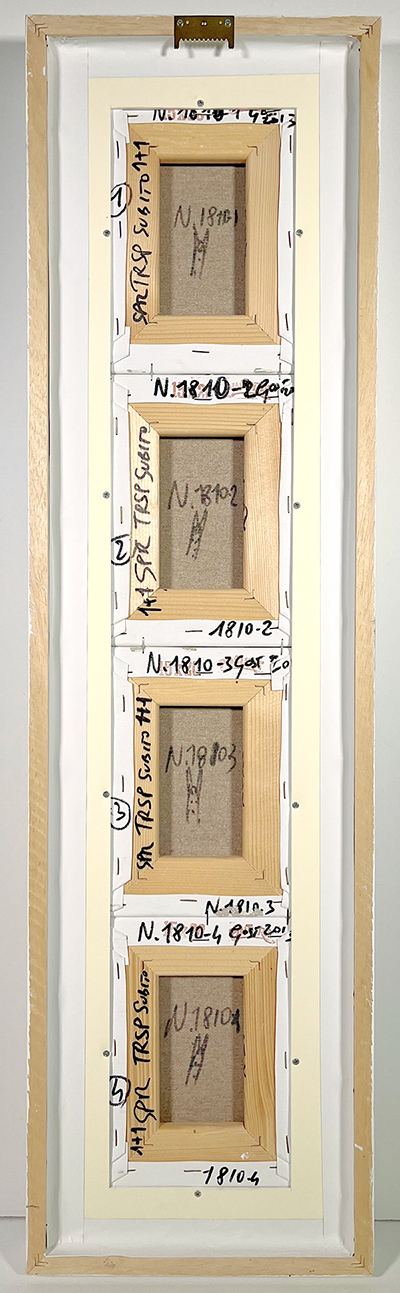 N.1810-1
1
SPR TRSP SUBITO 1+1
N.1810-1
N.1810-2
2
1+1 SPR TRSP SUBITO
N.1810-2
1810-2
N.1810-3
3
SPR TRSP SUBITO 1+1
N.1810-3
N.1810-3
N.1810-4 2013
1+1 SPR TRSP SUBITO
N.1810-4
1810-4